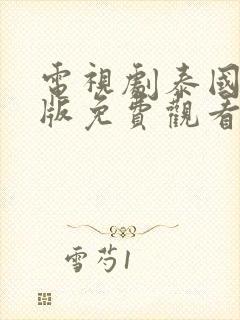 電視劇泰國
版免費觀看
雪芍1